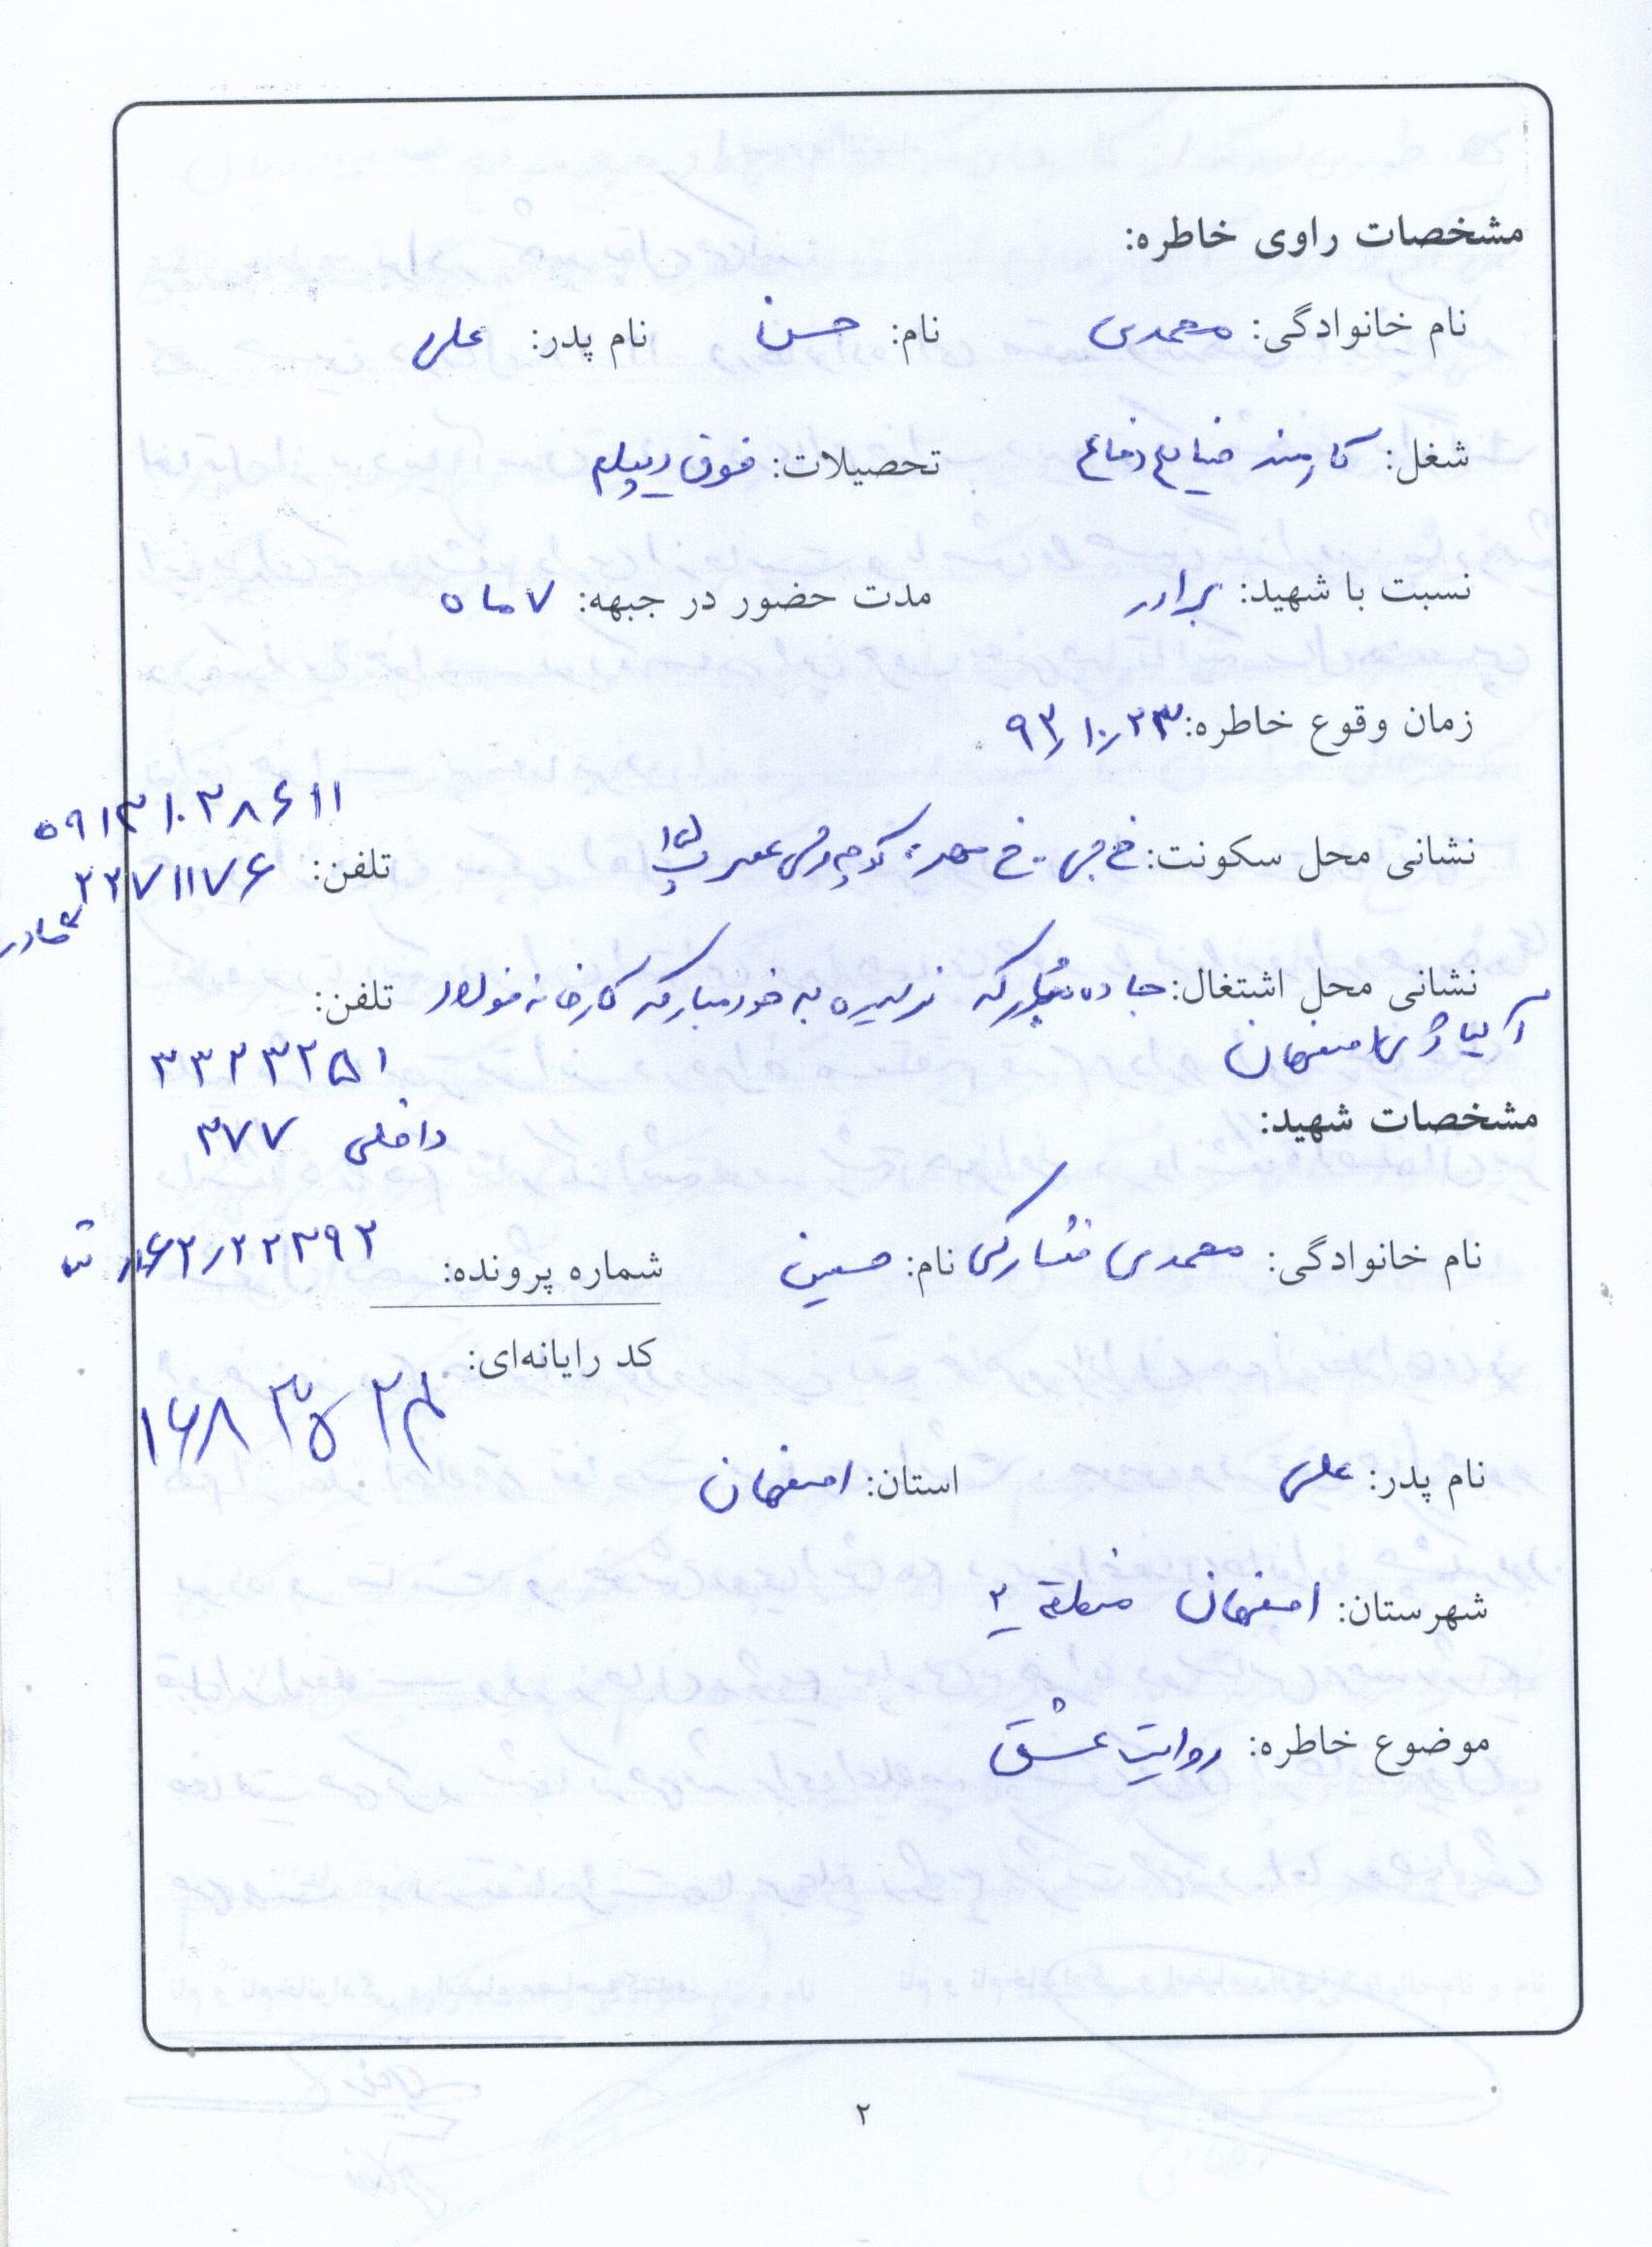 مشخصات راوی خاطره:
نام خانوادگی: محمدی نام: حسن نام پدر: علی
شغل: کارمند صنایع دفاع تحصیلات: فوق دیپلم
نسبت با شهید: برادر مدت حضور در جبهه: ۷ ماه
زمان وقوع خاطره: ۹۳/۱۰/۲۳
۰۹۱۳۱۰۳۸۶۱۱
نشانی محل سکونت: خ جی - خ مهر - کوچه ولی عصر پ ۱۵ تلفن: ۲۲۷۱۱۷۶
مادر
نشانی محل اشتغال: جاده مبارکه نرسیده به خود مبارکه کارخانه فولاد تلفن:
آلیاژی اصفهان ۳۳۲۳۲۵۱
مشخصات شهید: داخلی ۳۷۷
نام خانوادگی: محمدی فشارکی نام: حسین شماره پرونده: ۶۲/۲۲۳۹۲
کد رایانه‌ای:
نام پدر: علی استان: اصفهان
شهرستان: اصفهان منطقه ۲
موضوع خاطره: روایت عشق
۲